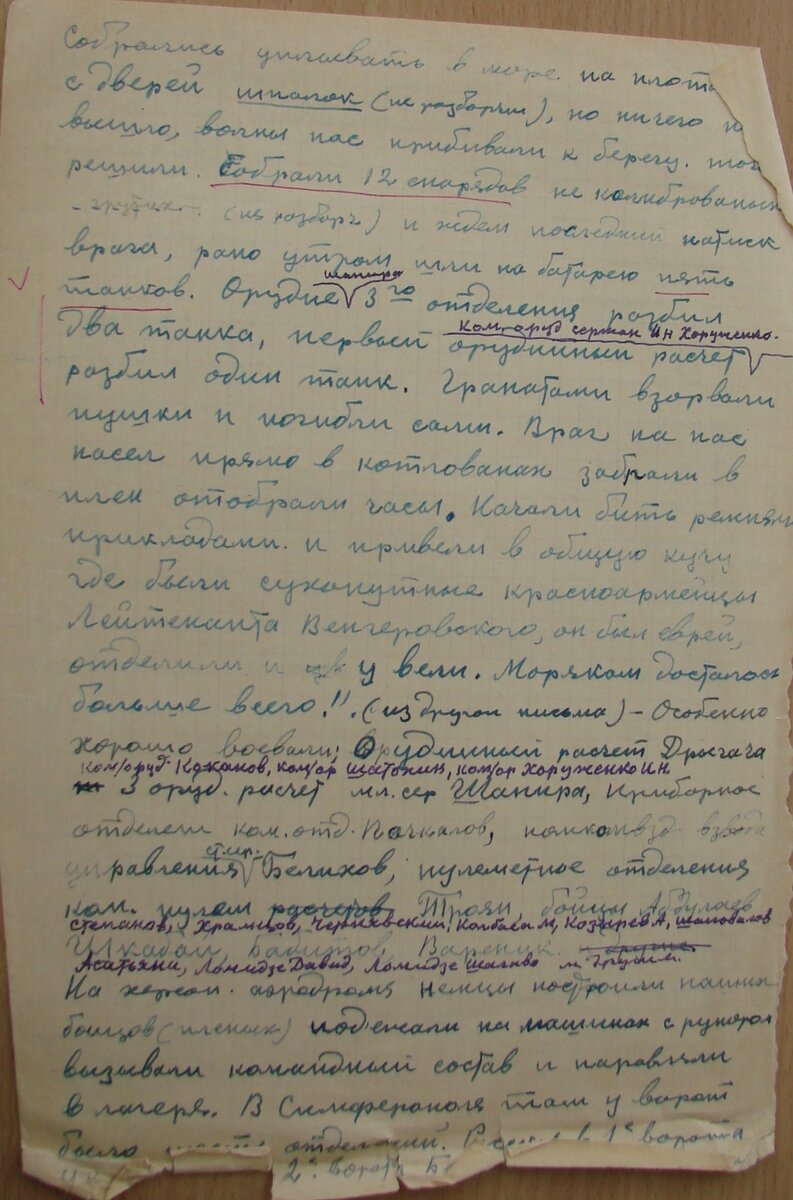 Собрались уплывать в море на плота
с дверей шпалок (не разборчи), но ничего н
вышло, волны нас прибивали к берегу. тог
решили. Собрали 12 снарядов не калиброваных
(не разборч) и ждем последний натиск
врага, рано утром шли на батарею пять
шапира
танков. Орудие 3го отделения разбил
ком.оруд сержан Ин Хоруженко.
два танка, первый орудийный расчет
разбил один танк. Гранатами взорвали
пушки и погибли сами. Враг на нас
насел прямо в котлованах забрали в
плен отобрали часы. Качали бить ремнями
прикладами. и привели в общую кучу
где были сухопутные красноармейцы
Лейтенанта Венгеровского, он был еврей,
отделили и у вели. Морякам досталось
больше всего!". (из другой письма) – Особенно
хорошо воевали; Орудийный расчет Драгача
ком/оруд Кажанов, ком/ор Шатохин, ком/ор Хоруженко ИН
3 оруд. расчет мл. сер Шапира, Приборное
отделен ком. отд. Почкалов, помкомвзд. взвода
стар.
управления Белихов, пулеметное отделения
ком. пулем расчетов Троян, бойцы Абдулаев
Степанов, Храмцов, Черниевский, Колбаса М, Козырев А, Шаповалов
Шкабай, Бабитов, Варенцк.
Асатьяни, Ломидзе Давид, Ломидзе Шалико
На херсон. аэродромя немцы построили наших
бойцов (пленых) подежали на машинах с рупором
вызывали командный состав и паравляли
в лагеря. В Симферополя там у ворот
было отделений. 1е ворота
2е ворота